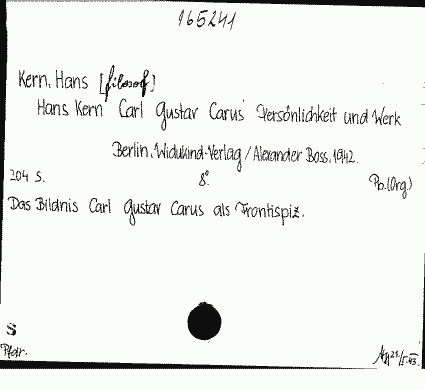 165241
Kern, Hans [filosof]
Hans Kern Carl Gustav Carus Persönlichkeit und Werk
Berlin, Widukind-Verlag / Alexander Boss. 1942.
204 S. 8° Pb. (Org)
Das Bildnis Carl Gustav Carus als Frontispiz.
S